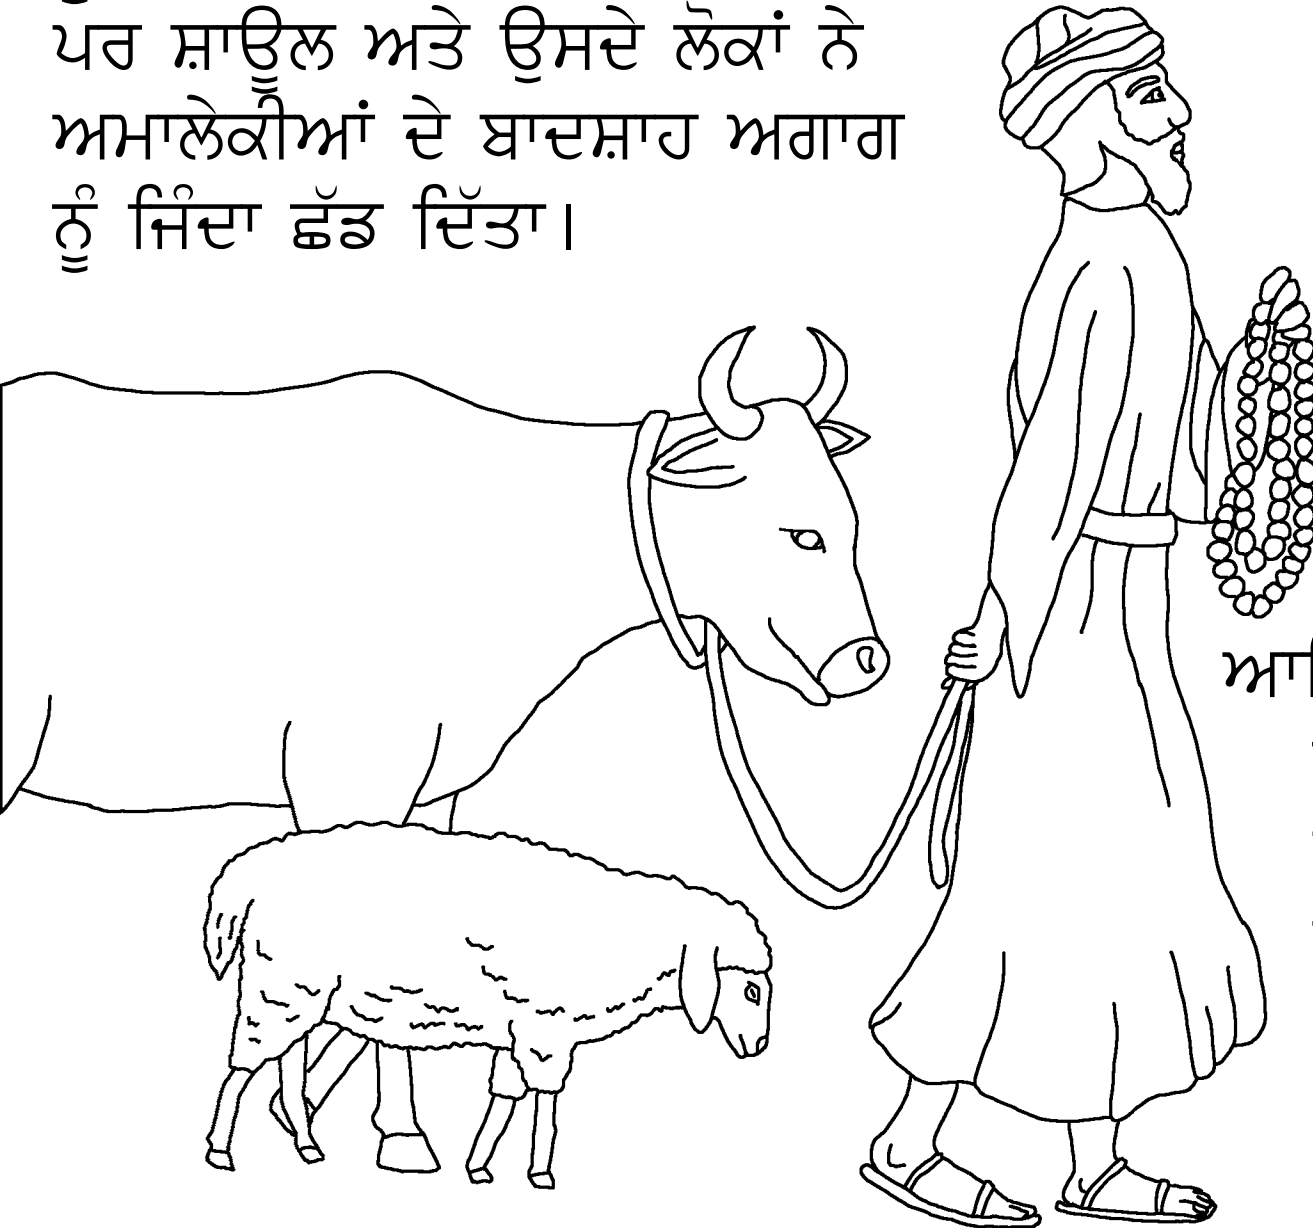 ਪਰ ਸ਼ਾਊਲ ਅਤੇ ਉਸਦੇ ਲੋਕਾਂ ਨੇ
ਅਮਾਲੇਕੀਆਂ ਦੇ ਬਾਦਸ਼ਾਹ ਅਗਾਗ
ਨੂੰ ਜਿੰਦਾ ਛੱਡ ਦਿੱਤਾ।